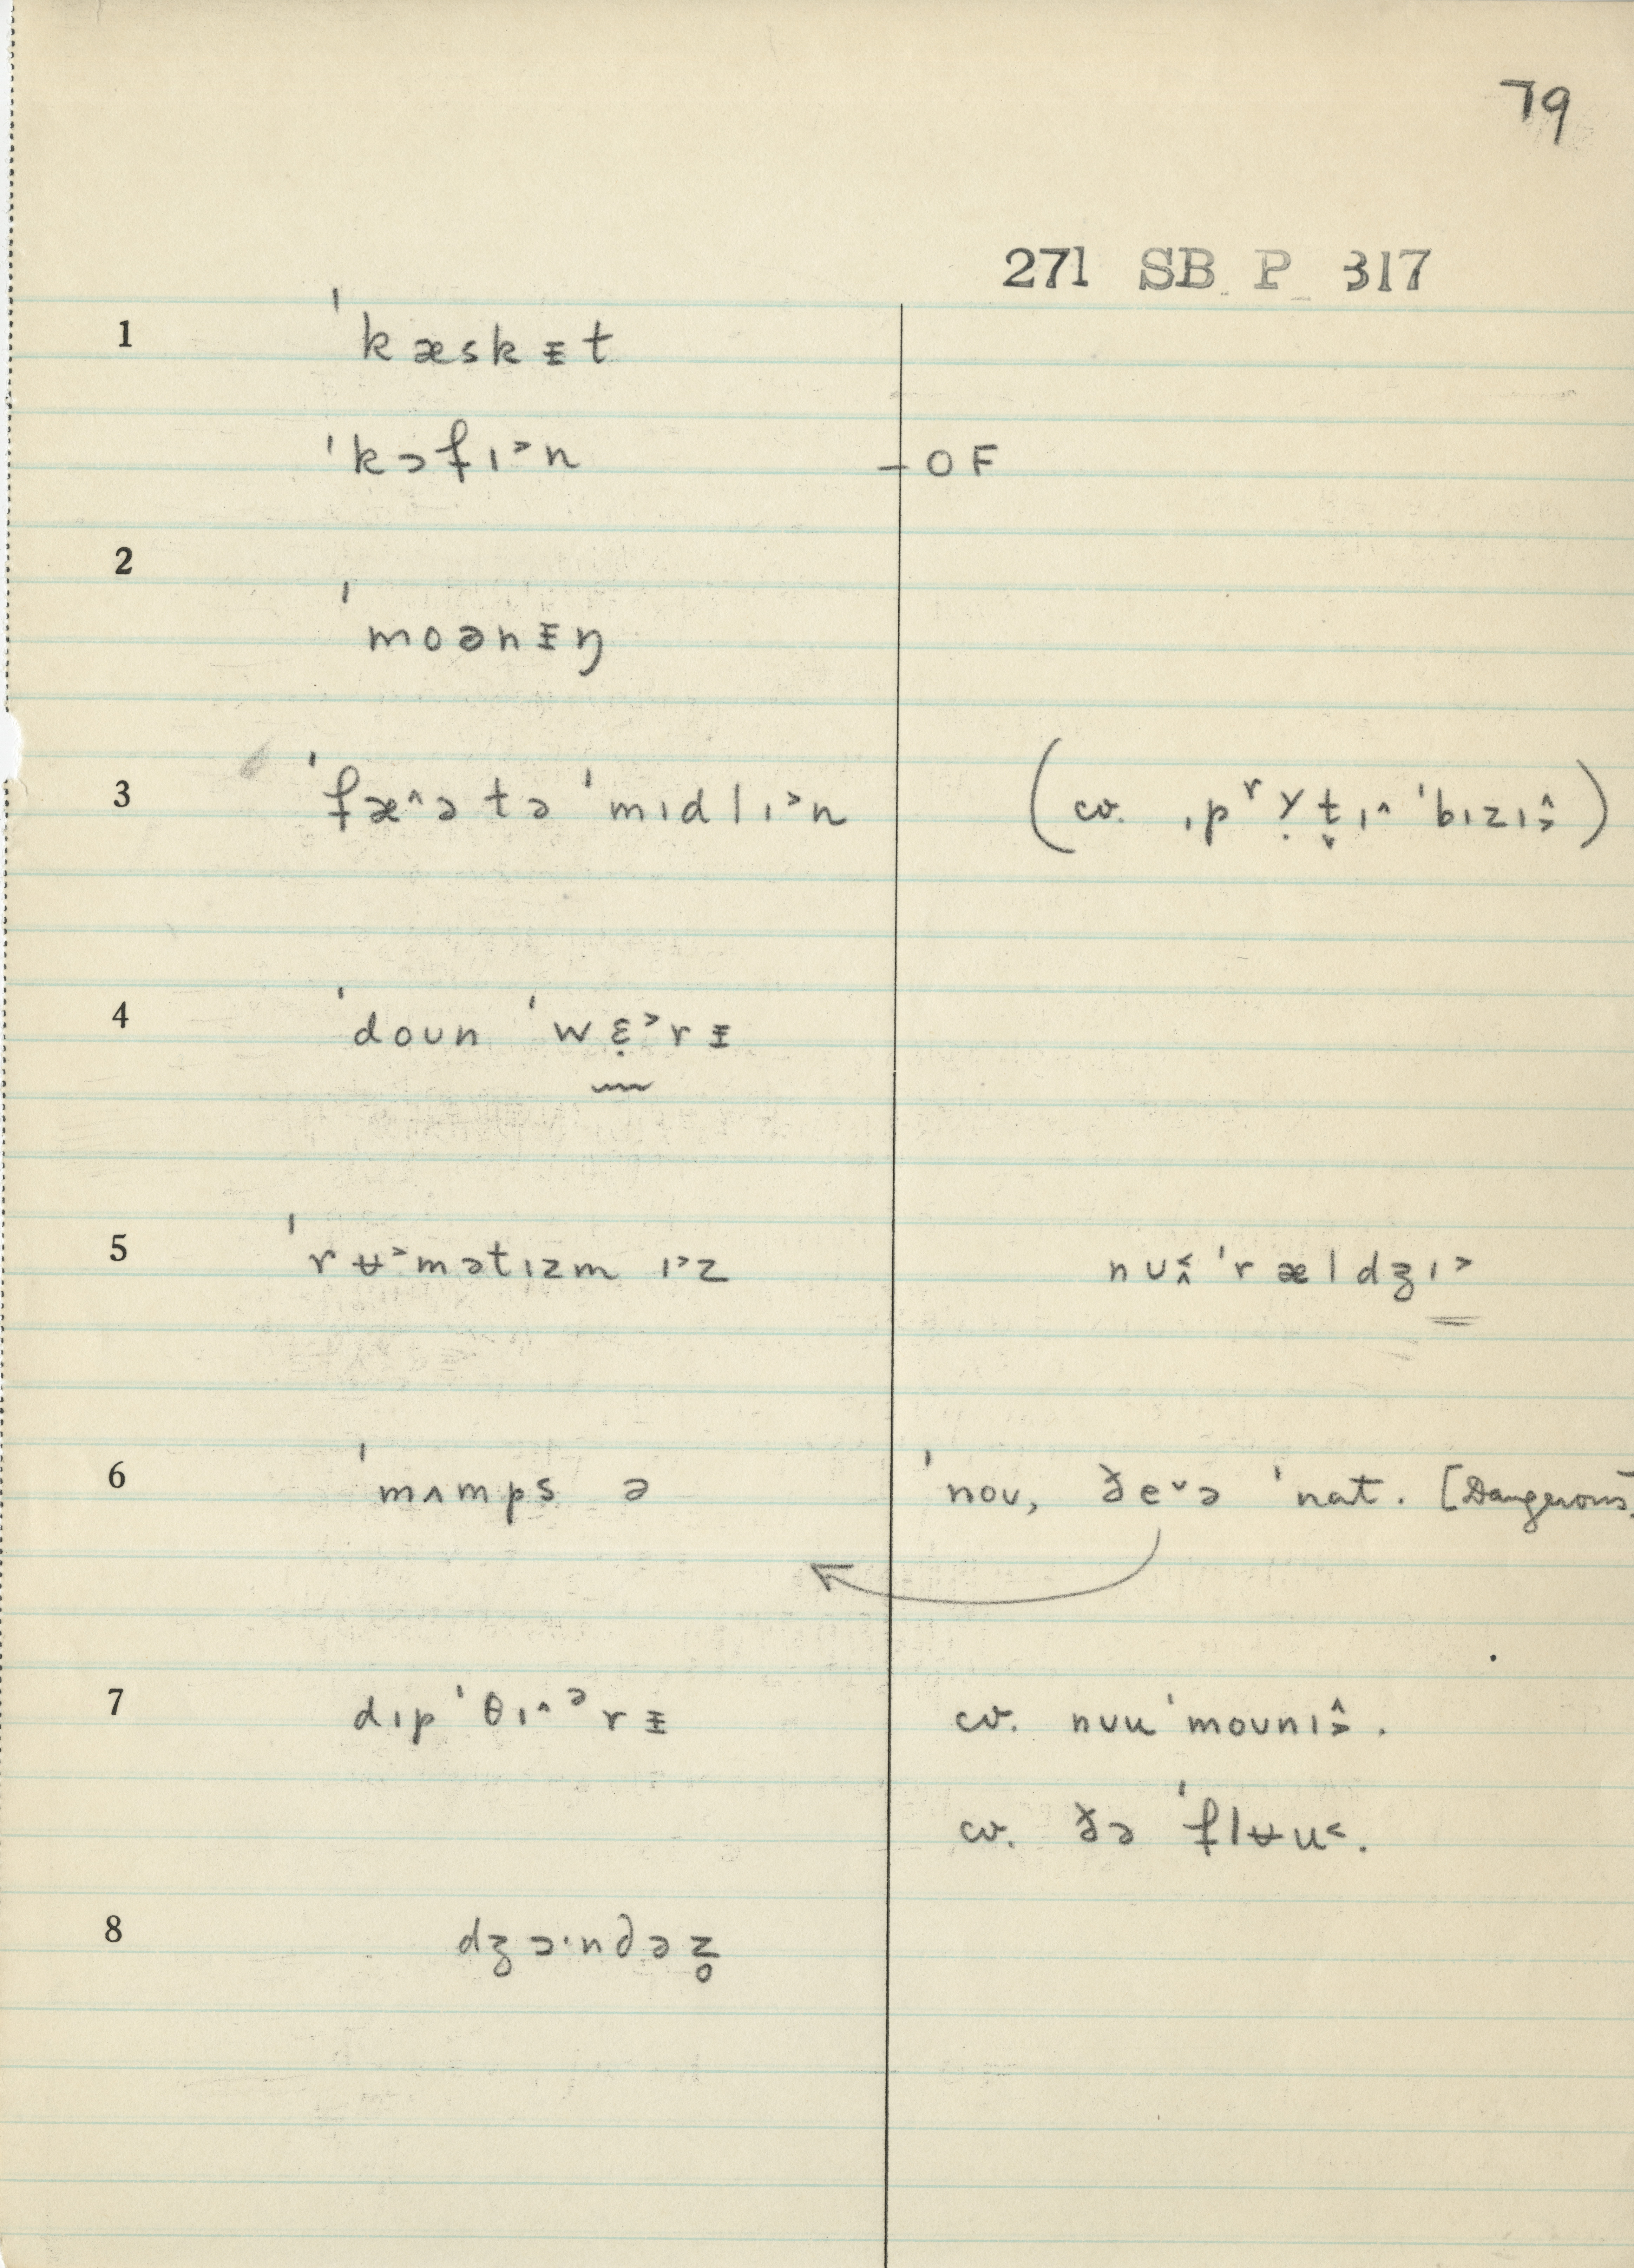 79
271 SB P 317
1 ˈkæskᵻt
ˈkɔfɪ˃n – OF
2
ˈmoənᵻŋ
3 ˈfæ^ə tə ˈmɪdlɪ˃n (cv. ˌpʳʏ̣t̬ɪ^ ˈbɪzɪ˄˃)
4 ˈdoʊn ˈwɛ̣˃rᵻ
5 ˈrʉ˃mətɪzm ɪ˃z nʊ˂˄ ˈrældʒɪ˃
6 ˈmʌmps ə ˈnoʊ, ðe˅ə ˈnɑt. [Dangerous]
7 dɪpˈθɪ^ᵊrᵻ cv. nʊuˈmoʊnɪ˄˃.
cv. ðə ˈflʉu˂.
8 dʒɔ·ndəz̥